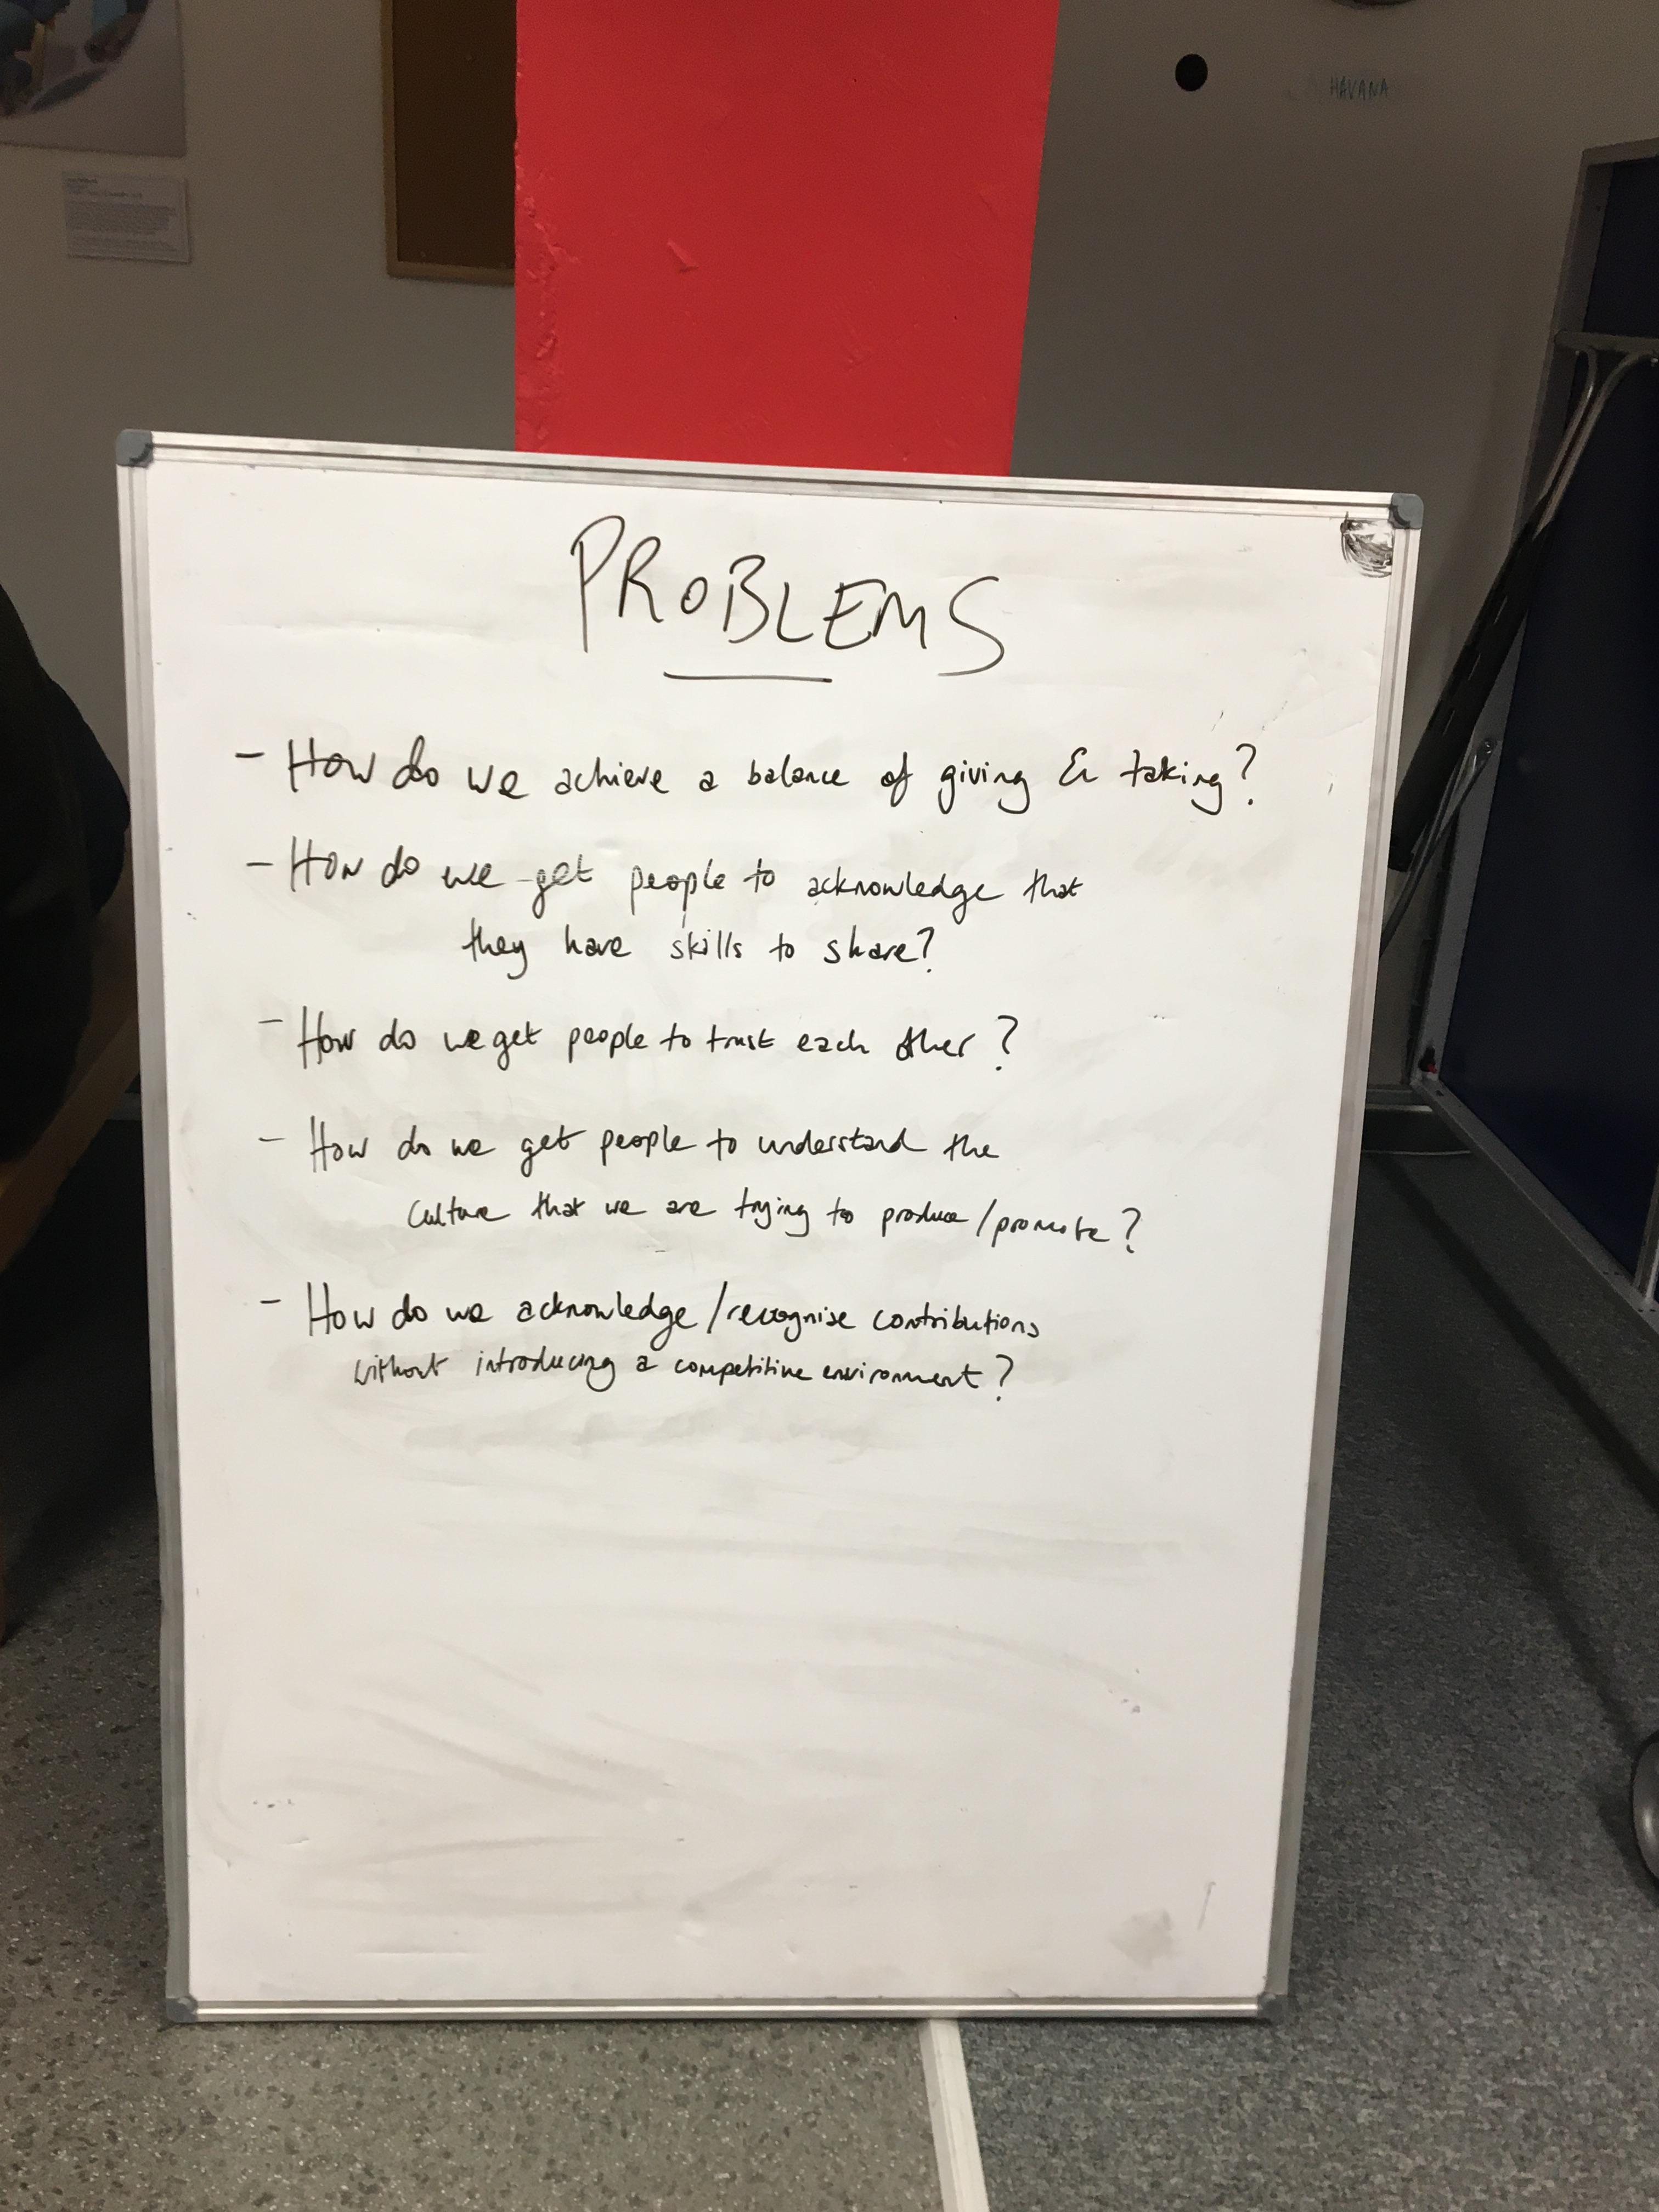 HAVANA
PROBLEMS
- How do we achieve a balance of giving & taking?
- How do we get people to acknowledge that
they have skills to share?
- How do we get people to trust each other?
- How do we get people to understand the
culture that we are trying to produce/promote?
- How do we acknowledge/recognise contributions
without introducing a competitive environment?